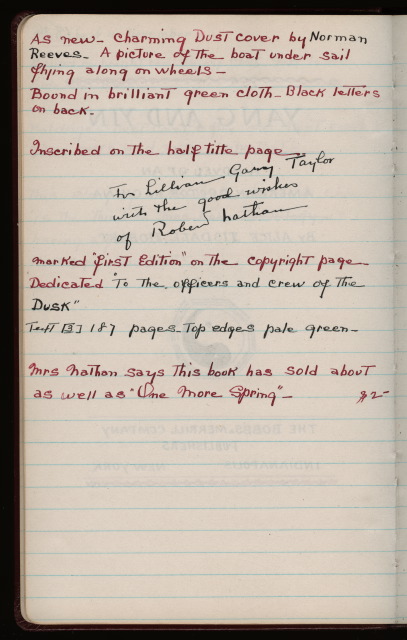 As new - Charming Dust cover by Norman
Reeves. A picture of the boat under sail
flying along on wheels -
Bound in brilliant green cloth - Black letters
on back -
Inscribed on the half title page
For Lillian Gary Taylor
with the good wishes
of Robert Nathan
marked "First Edition" on the copyright page -
Dedicated "To the officers and crew of the
Dusk"
Text [3] 187 pages - Top edges pale green -
Mrs Nathan says this book has sold about
as well as "One More Spring" -
$2-
THE BOBBS-MERRILL COMPANY
PUBLISHERS
INDIANAPOLIS NEW YORK